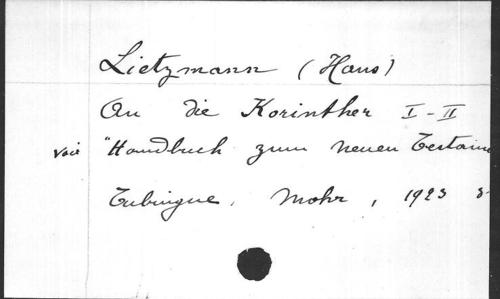 Lietzmann (Hans)
An die Korinther I-II
voir "Handbuch zum neuen Testame
Tubingue, Mohr, 1923 8